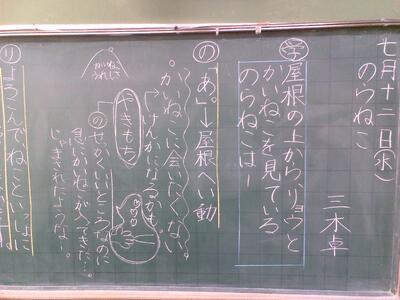 七月十二日(水)
のらねこ
三木卓
学 屋根の上から、リョウと
かいねこを見ている
のらねこは―
の あ。」→屋根へい動
かいねこに会いたくない。
→けんかになるかも。
やきもち
の せっかくいいところなのに
急にかいねこが入ってきた…
じゃまされたようだ…。
かいねこ
うれしさ
り よろこんで、ねこといっしょに